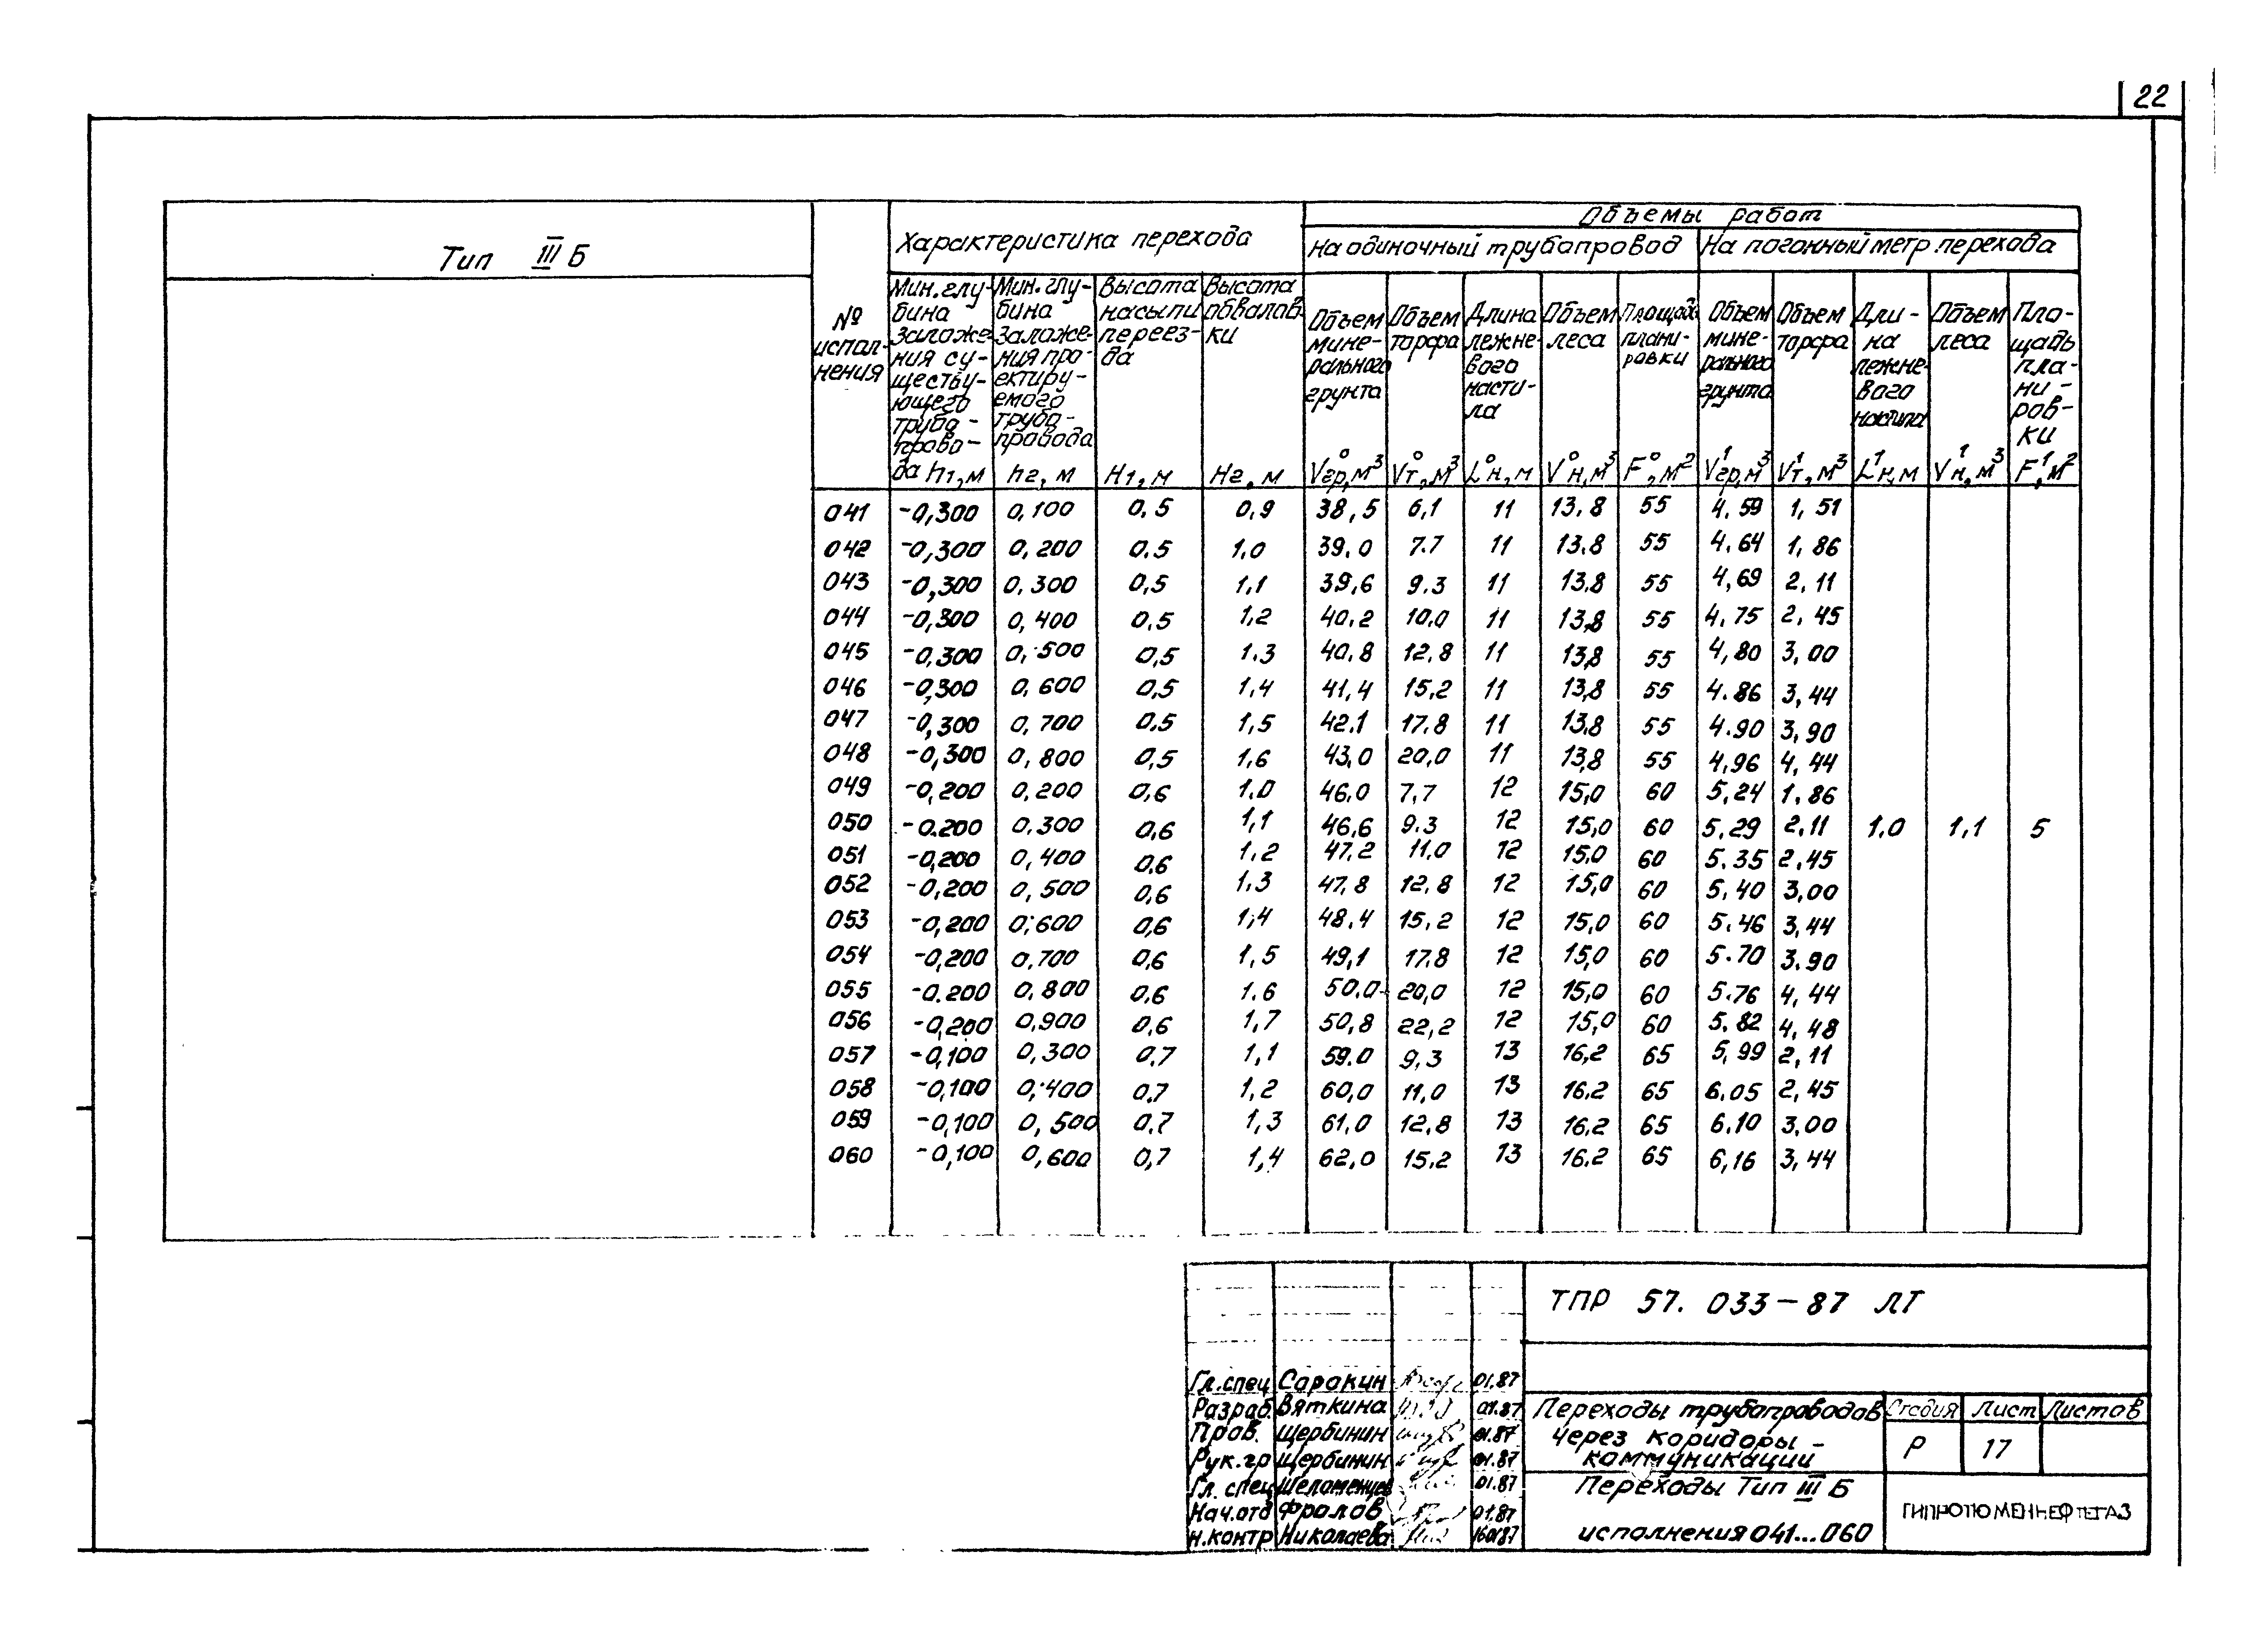 22
Тип III Б
№ исполнения
Характеристика перехода
Объемы работ
На одиночный трубопровод
На погонный метр перехода
Мин. глубина заложения существующего трубопровода h1, м
Мин. глубина заложения проектируемого трубопровода h2, м
Высота насыпи переезда H1, м
Высота обваловки H2, м
Объем минерального грунта V°гр, м³
Объем торфа V°т, м³
Длина лежневого настила L°н, м
Объем леса V°н, м³
Площадь планировки F°, м²
Объем минерального грунта V¹гр, м³
Объем торфа V¹т, м³
Длина лежневого настила L¹н, м
Объем леса V¹н, м³
Площадь планировки F¹, м²
041 -0,300 0,100 0,5 0,9 38,5 6,1 11 13,8 55 4,59 1,51
042 -0,300 0,200 0,5 1,0 39,0 7,7 11 13,8 55 4,64 1,86
043 -0,300 0,300 0,5 1,1 39,6 9,3 11 13,8 55 4,69 2,11
044 -0,300 0,400 0,5 1,2 40,2 10,0 11 13,8 55 4,75 2,45
045 -0,300 0,500 0,5 1,3 40,8 12,8 11 13,8 55 4,80 3,00
046 -0,300 0,600 0,5 1,4 41,4 15,2 11 13,8 55 4,86 3,44
047 -0,300 0,700 0,5 1,5 42,1 17,8 11 13,8 55 4,90 3,90
048 -0,300 0,800 0,5 1,6 43,0 20,0 11 13,8 55 4,96 4,44
049 -0,200 0,200 0,6 1,0 46,0 7,7 12 15,0 60 5,24 1,86
050 -0,200 0,300 0,6 1,1 46,6 9,3 12 15,0 60 5,29 2,11 1,0 1,1 5
051 -0,200 0,400 0,6 1,2 47,2 11,0 12 15,0 60 5,35 2,45
052 -0,200 0,500 0,6 1,3 47,8 12,8 12 15,0 60 5,40 3,00
053 -0,200 0,600 0,6 1,4 48,4 15,2 12 15,0 60 5,46 3,44
054 -0,200 0,700 0,6 1,5 49,1 17,8 12 15,0 60 5,70 3,90
055 -0,200 0,800 0,6 1,6 50,0 20,0 12 15,0 60 5,76 4,44
056 -0,200 0,900 0,6 1,7 50,8 22,2 12 15,0 60 5,82 4,48
057 -0,100 0,300 0,7 1,1 59,0 9,3 13 16,2 65 5,99 2,11
058 -0,100 0,400 0,7 1,2 60,0 11,0 13 16,2 65 6,05 2,45
059 -0,100 0,500 0,7 1,3 61,0 12,8 13 16,2 65 6,10 3,00
060 -0,100 0,600 0,7 1,4 62,0 15,2 13 16,2 65 6,16 3,44
ТПР 57.033-87 ЛТ
Гл. спец Саракин 01.87
Разраб. Вяткина 01.87
Пров. Щербинин 01.87
Рук. гр Щербинин 01.87
Гл. спец Шеломенцев 01.87
Нач. отд Фролов 01.87
Н. контр Николаева 160187
Переходы трубопроводов
через коридоры -
коммуникации
Стадия Лист Листов
Р 17
Переходы Тип III Б
исполнения 041...060
ГИПРОТЮМЕННЕФТЕГАЗ